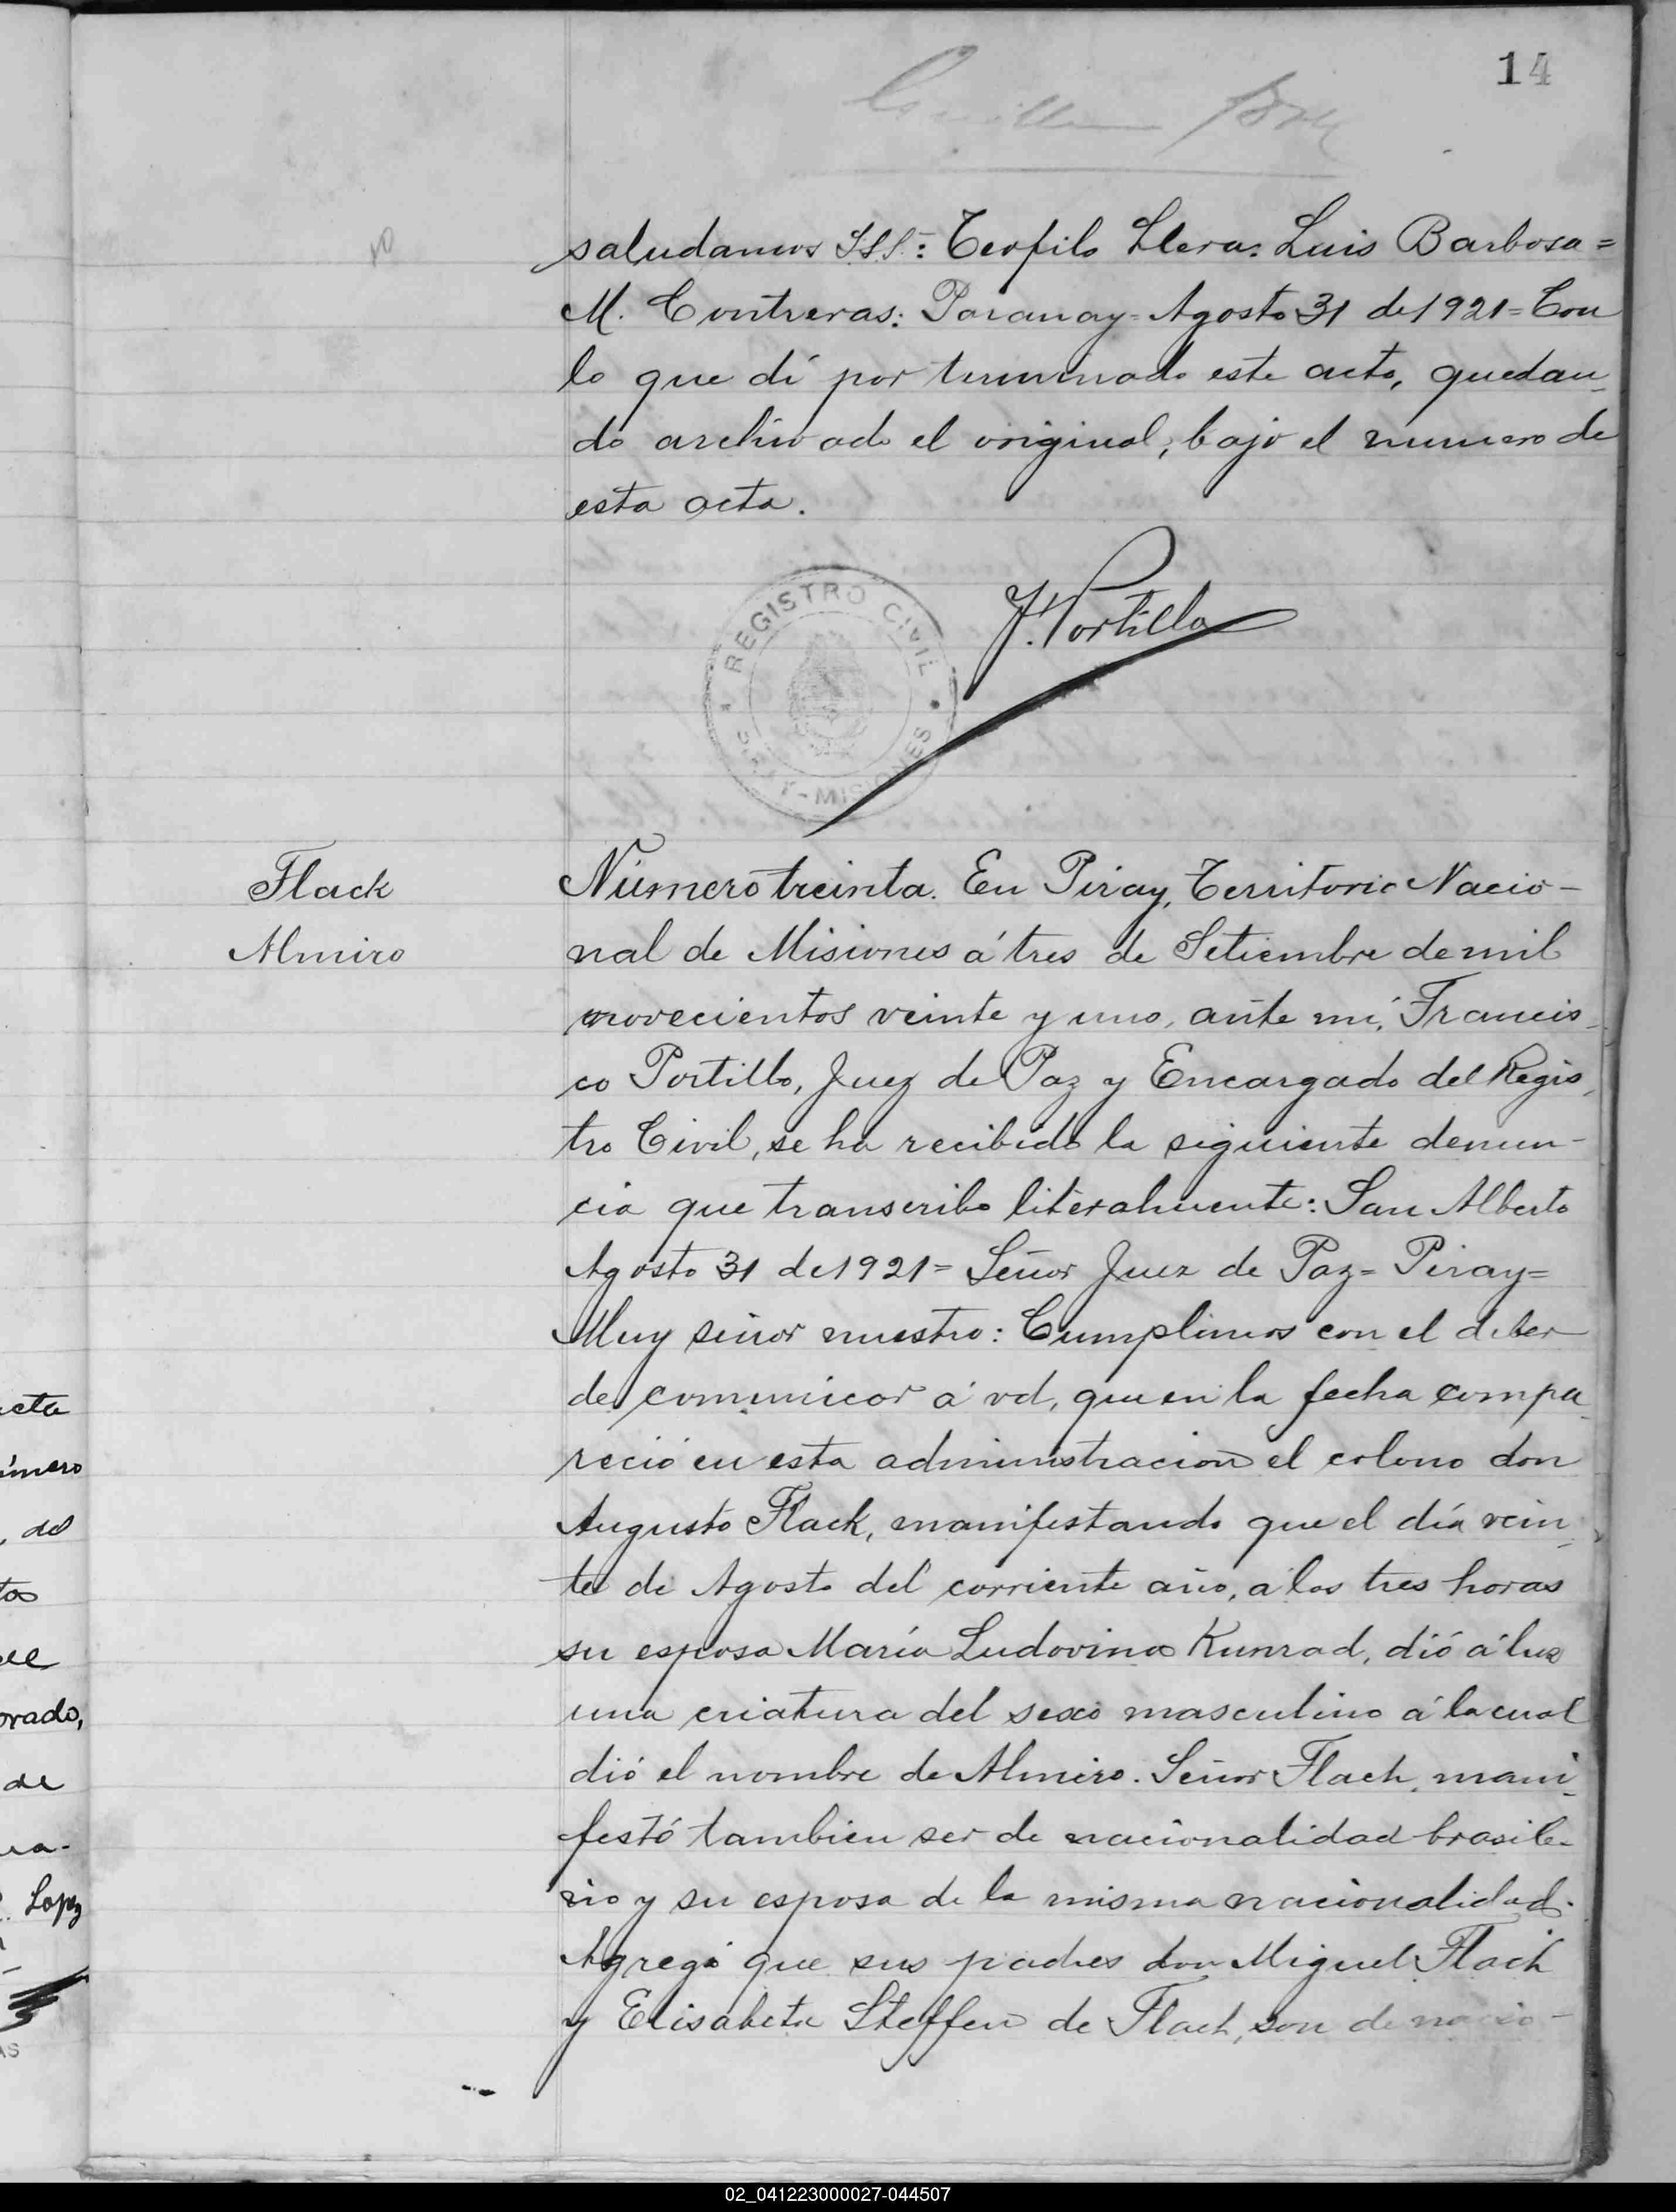 14
saludamos S.S.S.: Teofilo Llera: Luis Barbosa=
M. Contreras: Paranay= Agosto 31 de 1921= Con
lo que dí por terminado este acto, quedan_
do archivado el original, bajo el numero de
esta acta.
REGISTRO CIVIL
PIRAY - MISIONES
F. Portillo
Flack
Almiro
Número treinta. En Piray, Territorio Nacio-
nal de Misiones á tres de Setiembre de mil
novecientos veinte y uno, ante mí, Francis_
co Portillo, Juez de Paz y Encargado del Regis_
tro Civil, se ha recibido la siguiente denun-
cia que transcribo literalmente: San Alberto
Agosto 31 de 1921= Señor Juez de Paz= Piray=
Muy señor nuestro: Cumplimos con el deber
de comunicar á vd, que en la fecha compa_
reció en esta administracion el colono don
Augusto Flack, manifestando que el día vein_
te de Agosto del corriente año, á las tres horas
su esposa María Ludovina Kunrad, dió á luz
una criatura del sexo masculino á la cual
dió el nombre de Almiro. Señor Flach, mani_
festó tambien ser de nacionalidad brasile-
rio y su esposa de la misma nacionalidad.
Agregó que sus padres don Miguel Flach
y Elisabeta Steffen de Flach, son de nacio-
cta
úmero
, del
tos
orado,
de
Lopez
02_041223000027-044507